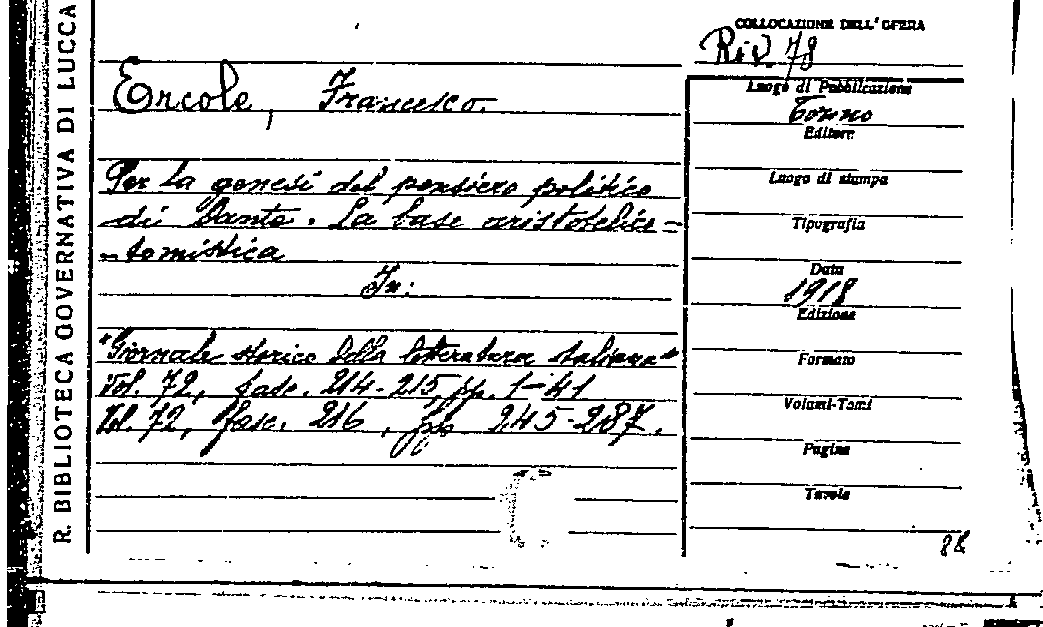 R. BIBLIOTECA GOVERNATIVA DI LUCCA
COLLOCAZIONE DELL'OPERA
Riv. 78
Ercole, Francesco.
Luogo di Pubblicazione
Torino
Editore
Per la genesi del pensiero politico
di Dante. La base aristotelico=
=tomistica
In:
"Giornale storico della letteratura italiana"
Vol. 72, fasc. 214-215, pp. 1-41
Vol. 72, fasc. 216, pp 245-287.
Luogo di stampa
Tipografia
Data
1918
Edizione
Formato
Volumi-Tomi
Pagine
Tavole